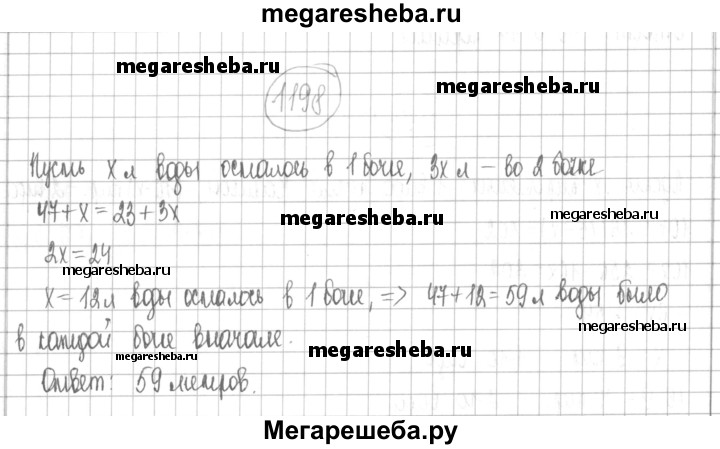 megaresheba.ru
megaresheba.ru
megaresheba.ru
1198
Пусть x л воды осталось в 1 боче, 3x л – во 2 бочке
47+x=23+3x
megaresheba.ru
megaresheba.ru
2x=24
megaresheba.ru
x=12 л воды осталось в 1 боче, => 47+12=59 л воды было
megaresheba.ru
в каждой боче вначале.
megaresheba.ru
megaresheba.ru
Ответ: 59 литров.
megaresheba.ru
Мегарешеба.ру